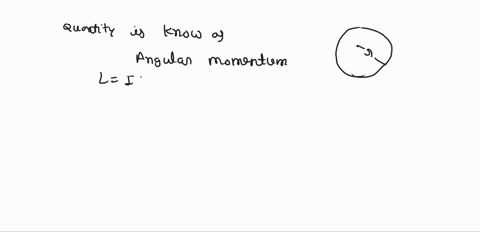 Quantity is know as
Angular momentum
L = I
r